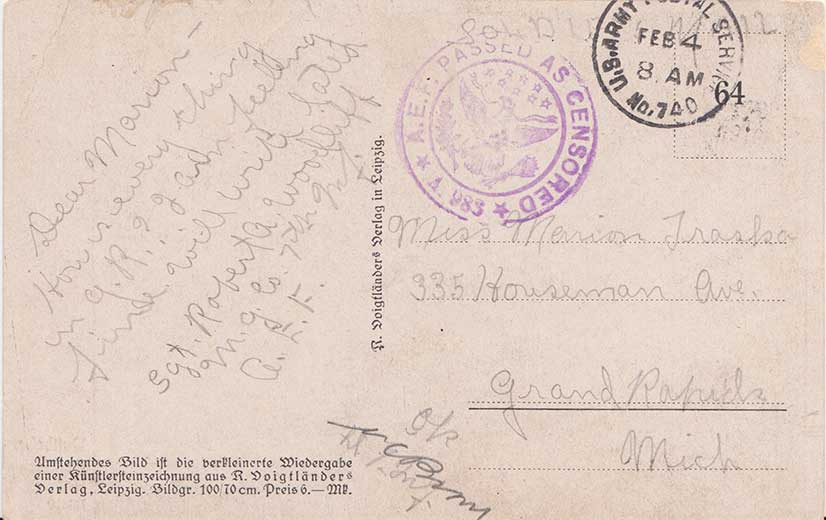 Dear Marion -
How is every thing
in G.R.? I am feeling
fine. Will write later
Sgt. Robert A Woodliff
M.G. Co. 7th Inf.
A.E.F.
Umstehendes Bild ist die verkleinerte Wiedergabe
einer Künstlersteinzeichnung aus R. Voigtländers
Verlag, Leipzig. Bildgr. 100/70 cm. Preis 6.— Mk.
R. Voigtländers Verlag in Leipzig.
SOLDIER'S MAIL
U.S. ARMY POSTAL SERVICE
FEB 4
8 AM
No. 740
64
A.E.F. PASSED AS CENSORED
A. 983
Miss Marion Traska
335 Houseman Ave.
Grand Rapids
Mich
OK